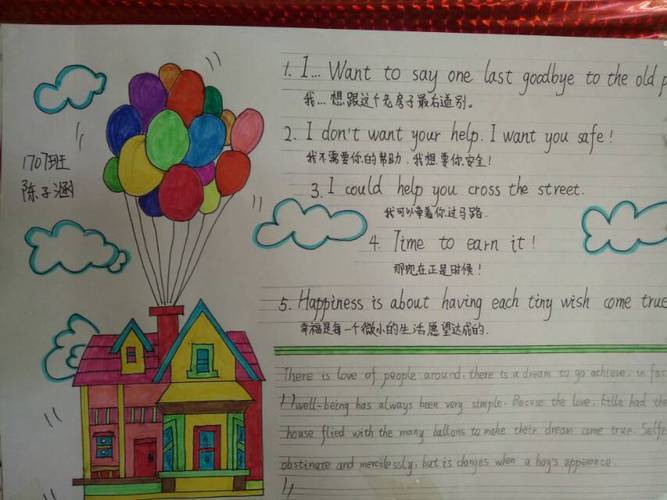 1. I... Want to say one last goodbye to the old p
我...想跟这个老房子最后道别。
2. I don't want your help. I want you safe!
我不需要你的帮助,我想要你安全!
1707班
陈子涵
3. I could help you cross the street.
我可以带着你过马路.
4. Time to earn it!
那现在正是时候!
5. Happiness is about having each tiny wish come true
幸福是每一个微小的生活愿望达成的.
There is love of people around. there is a dream to go achieve. in fac
well-being has always been very simple. Becuse the love. Ellie had the
house flied with the many ballons to make their dream come true. Self
obstinate and mercilessly, but is changes when a boy's apperance.